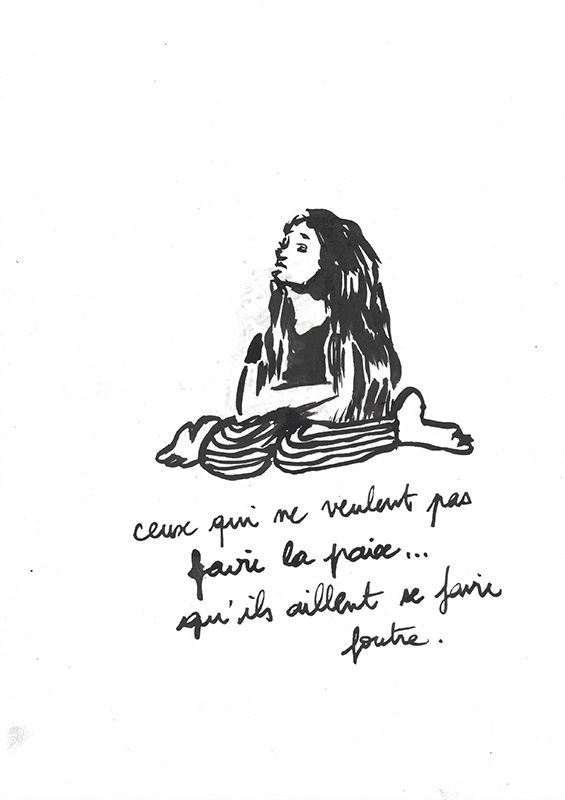 ceux qui ne veulent pas
faire la paix...
qu'ils aillent se faire
foutre.